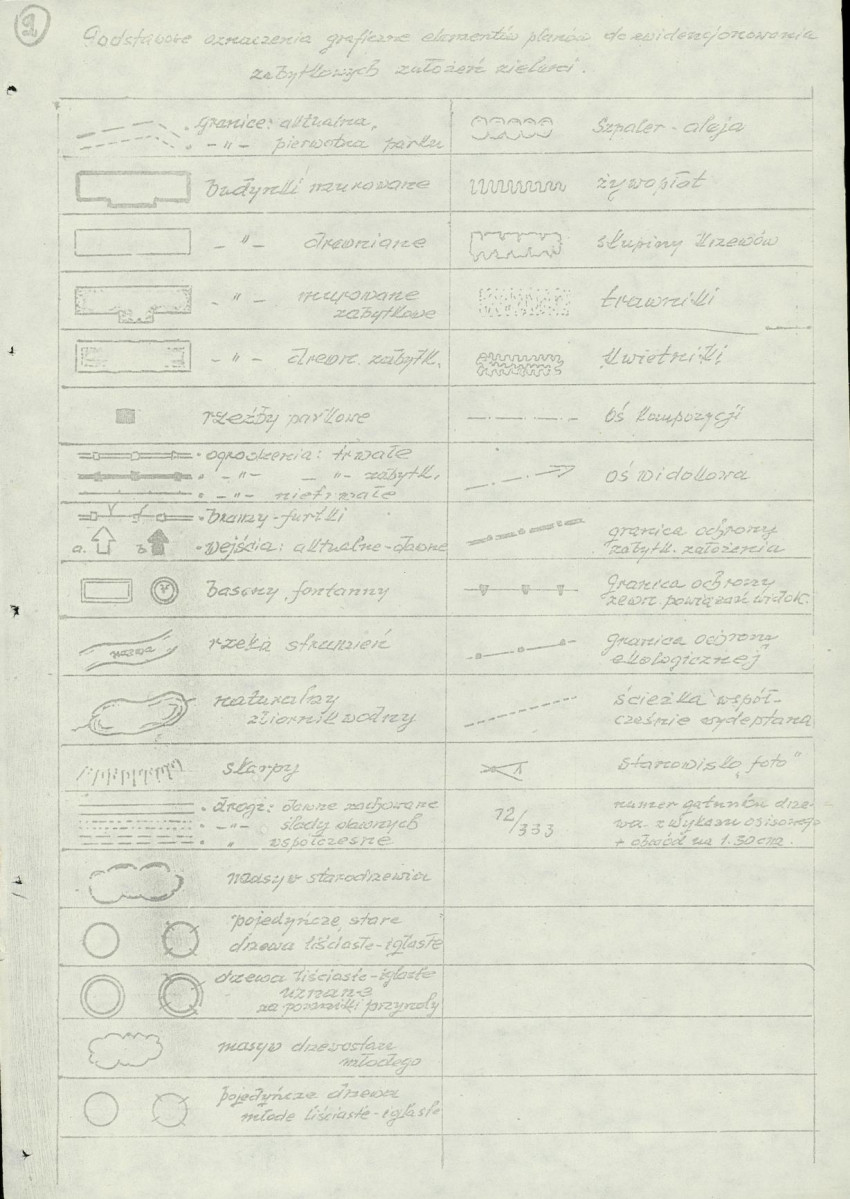 2
Podstawowe oznaczenia graficzne elementów planów do ewidencjonowania
zabytkowych założeń zieleni.
granice: aktualna,
- „ - pierwotna parku
budynki murowane
- „ - drewniane
- „ - murowane
zabytkowe
- „ - drewn. zabytk.
rzeźby parkowe
ogrodzenia: trwałe
- „ - - „ - zabytk.
- „ - nietrwałe
bramy-furtki
a. b. wejścia: aktualne-dawne
baseny, fontanny
nazwa rzeka strumień
naturalny
zbiornik wodny
skarpy
drogi: dawne zachowane
- „ - ślady dawnych
„ współczesne
masyw starodrzewia
pojedyńcze, stare
drzewa liściaste-iglaste
drzewa liściaste-iglaste
uznane
za pomniki przyrody
masyw drzewostanu
młodego
pojedyńcze drzewa
młode liściaste-iglaste
Szpaler - aleja
żywopłot
skupiny krzewów
trawniki
kwietniki
oś kompozycji
oś widokowa
granica ochrony
zabytk. założenia
granica ochrony
zewn. powiązań widok.
granica ochrony
ekologicznej
ścieżka współ-
cześnie wydeptana
Stanowisko „foto"
72/333 numer gatunku drze-
wa z wykazu opisowego
+ obwód na 1.30 cm.